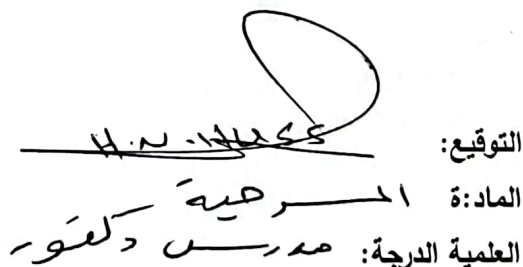 التوقيع: H.N.HUSS
الماد:ة المسرحية
العلمية الدرجة: مدرس دكتور